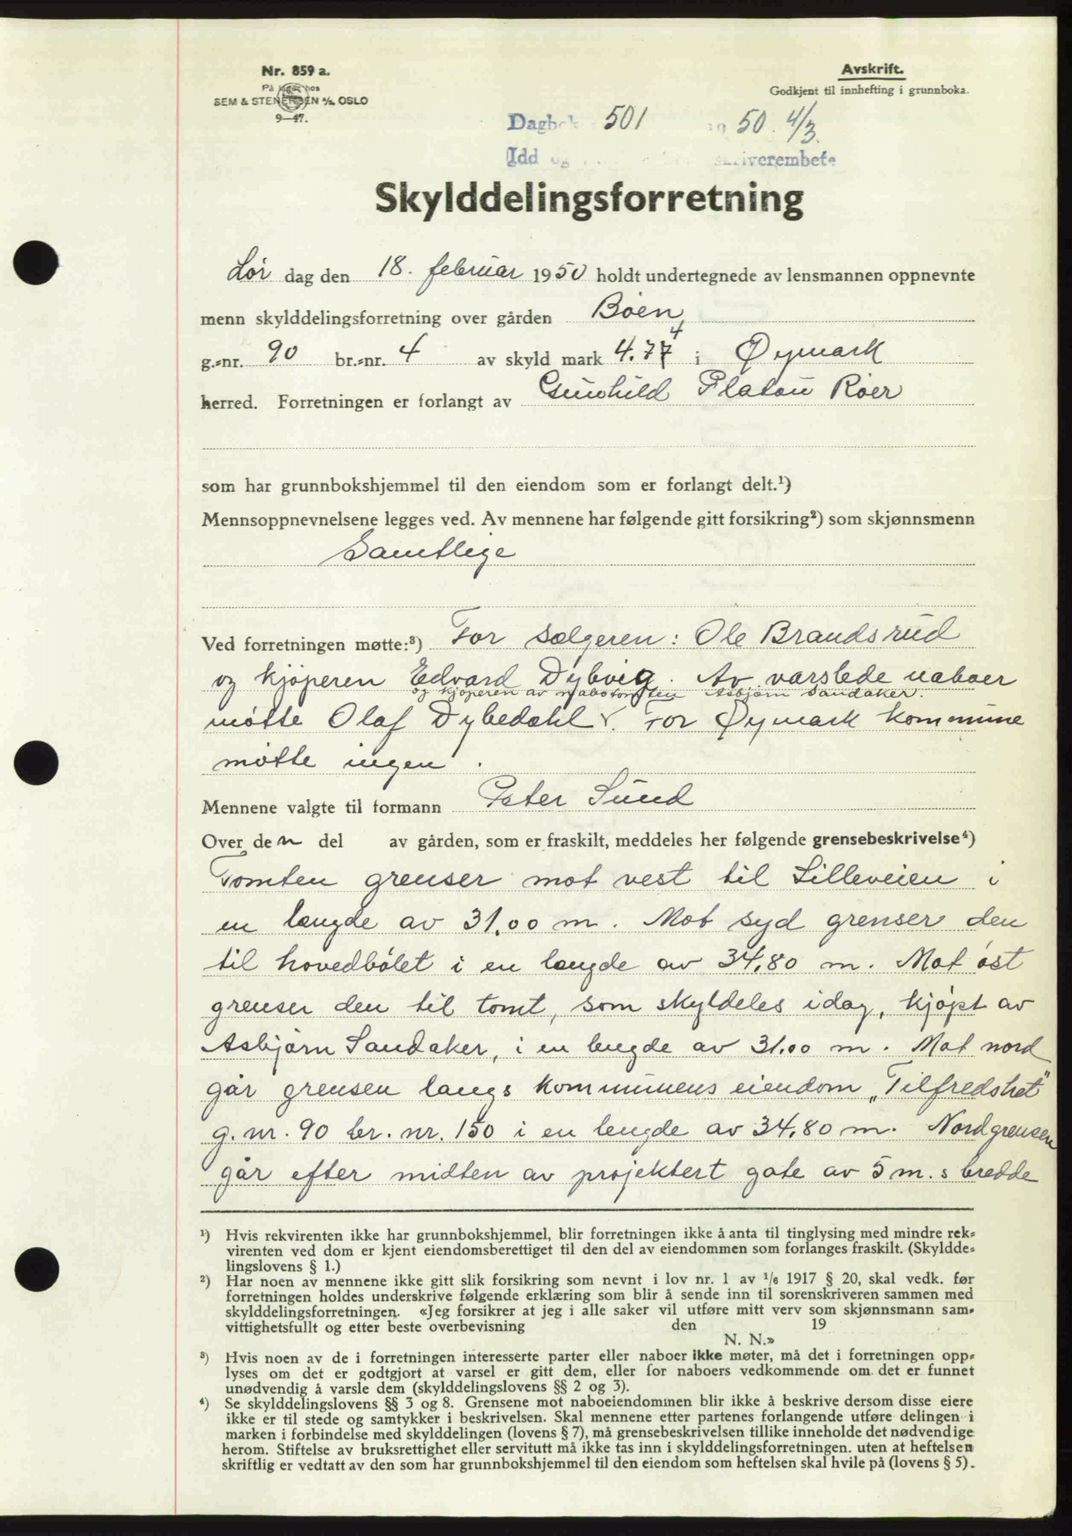 Nr. 859 a.
På lager hos
SEM & STENERSEN A/S, OSLO
9—47.
Avskrift.
Godkjent til innhefting i grunnboka.
Dagbok 501 1950. 4/3.
Idd og skriverembete
Skylddelingsforretning
Lør dag den 18. februar 1950 holdt undertegnede av lensmannen oppnevnte
menn skylddelingsforretning over gården Bøen
g.-nr. 90 br.-nr. 4 av skyld mark 4.74 i Øymark
herred. Forretningen er forlangt av Gunhild Platou Røer
som har grunnbokshjemmel til den eiendom som er forlangt delt.¹)
Mennsoppnevnelsene legges ved. Av mennene har følgende gitt forsikring²) som skjønnsmenn
Samtlige
Ved forretningen møtte:³) For sælgeren: Ole Brandsrud
og kjøperen Edvard Dybvig. Av varslede naboer
og kjøperen av nabotomten Asbjørn Sandaker.
møtte Olaf Dybedahl √. For Øymark kommune
møtte ingen.
Mennene valgte til formann Peter Sund
Over den del av gården, som er fraskilt, meddeles her følgende grensebeskrivelse⁴)
Tomten grenser mot vest til Lilleveien i
en længde av 31,00 m. Mot syd grenser den
til hovedbølet i en længde av 34,80 m. Mot øst
grenser den til tomt, som skyldeles idag, kjøpt av
Asbjørn Sandaker, i en lengde av 31,00 m. Mot nord
går grensen langs kommunens eiendom „Tilfredshet"
g. nr. 90 br. nr. 150 i en lengde av 34,80 m. Nordgrensen
går efter midten av projektert gate av 5 m.s bredde
¹) Hvis rekvirenten ikke har grunnbokshjemmel, blir forretningen ikke å anta til tinglysing med mindre rek-
virenten ved dom er kjent eiendomsberettiget til den del av eiendommen som forlanges fraskilt. (Skyldde-
lingslovens § 1.)
²) Har noen av mennene ikke gitt slik forsikring som nevnt i lov nr. 1 av 1/6 1917 § 20, skal vedk. før
forretningen holdes underskrive følgende erklæring som blir å sende inn til sorenskriveren sammen med
skylddelingsforretningen. «Jeg forsikrer at jeg i alle saker vil utføre mitt verv som skjønnsmann sam-
vittighetsfullt og etter beste overbevisning den 19
N. N.»
³) Hvis noen av de i forretningen interesserte parter eller naboer ikke møter, må det i forretningen opp-
lyses om det er godtgjort at varsel er gitt dem, eller for naboers vedkommende om det er funnet
unødvendig å varsle dem (skylddelingslovens §§ 2 og 3).
⁴) Se skylddelingslovens §§ 3 og 8. Grensene mot naboeiendommen blir ikke å beskrive dersom disse eiere
ikke er til stede og samtykker i beskrivelsen. Skal mennene etter partenes forlangende utføre delingen i
marken i forbindelse med skylddelingen (lovens § 7), må grensebeskrivelsen tillike inneholde det nødvendige
herom. Stiftelse av bruksrettighet eller servitutt må ikke tas inn i skylddelingsforretningen. uten at heftelsen
skriftlig er vedtatt av den som har grunnbokshjemmel til den eiendom som heftelsen skal hvile på (lovens § 5).